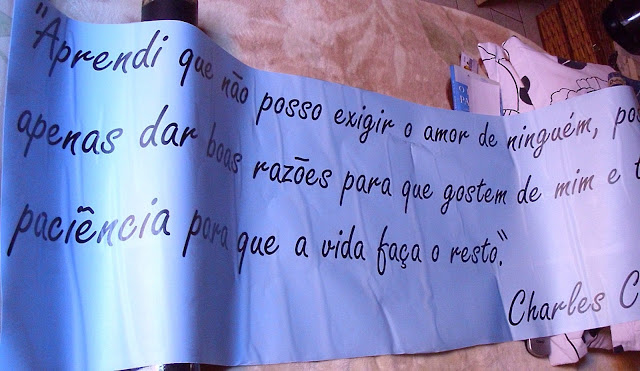 "Aprendi que não posso exigir o amor de ninguém,
apenas dar boas razões para que gostem de mim e
paciência para que a vida faça o resto."
Charles